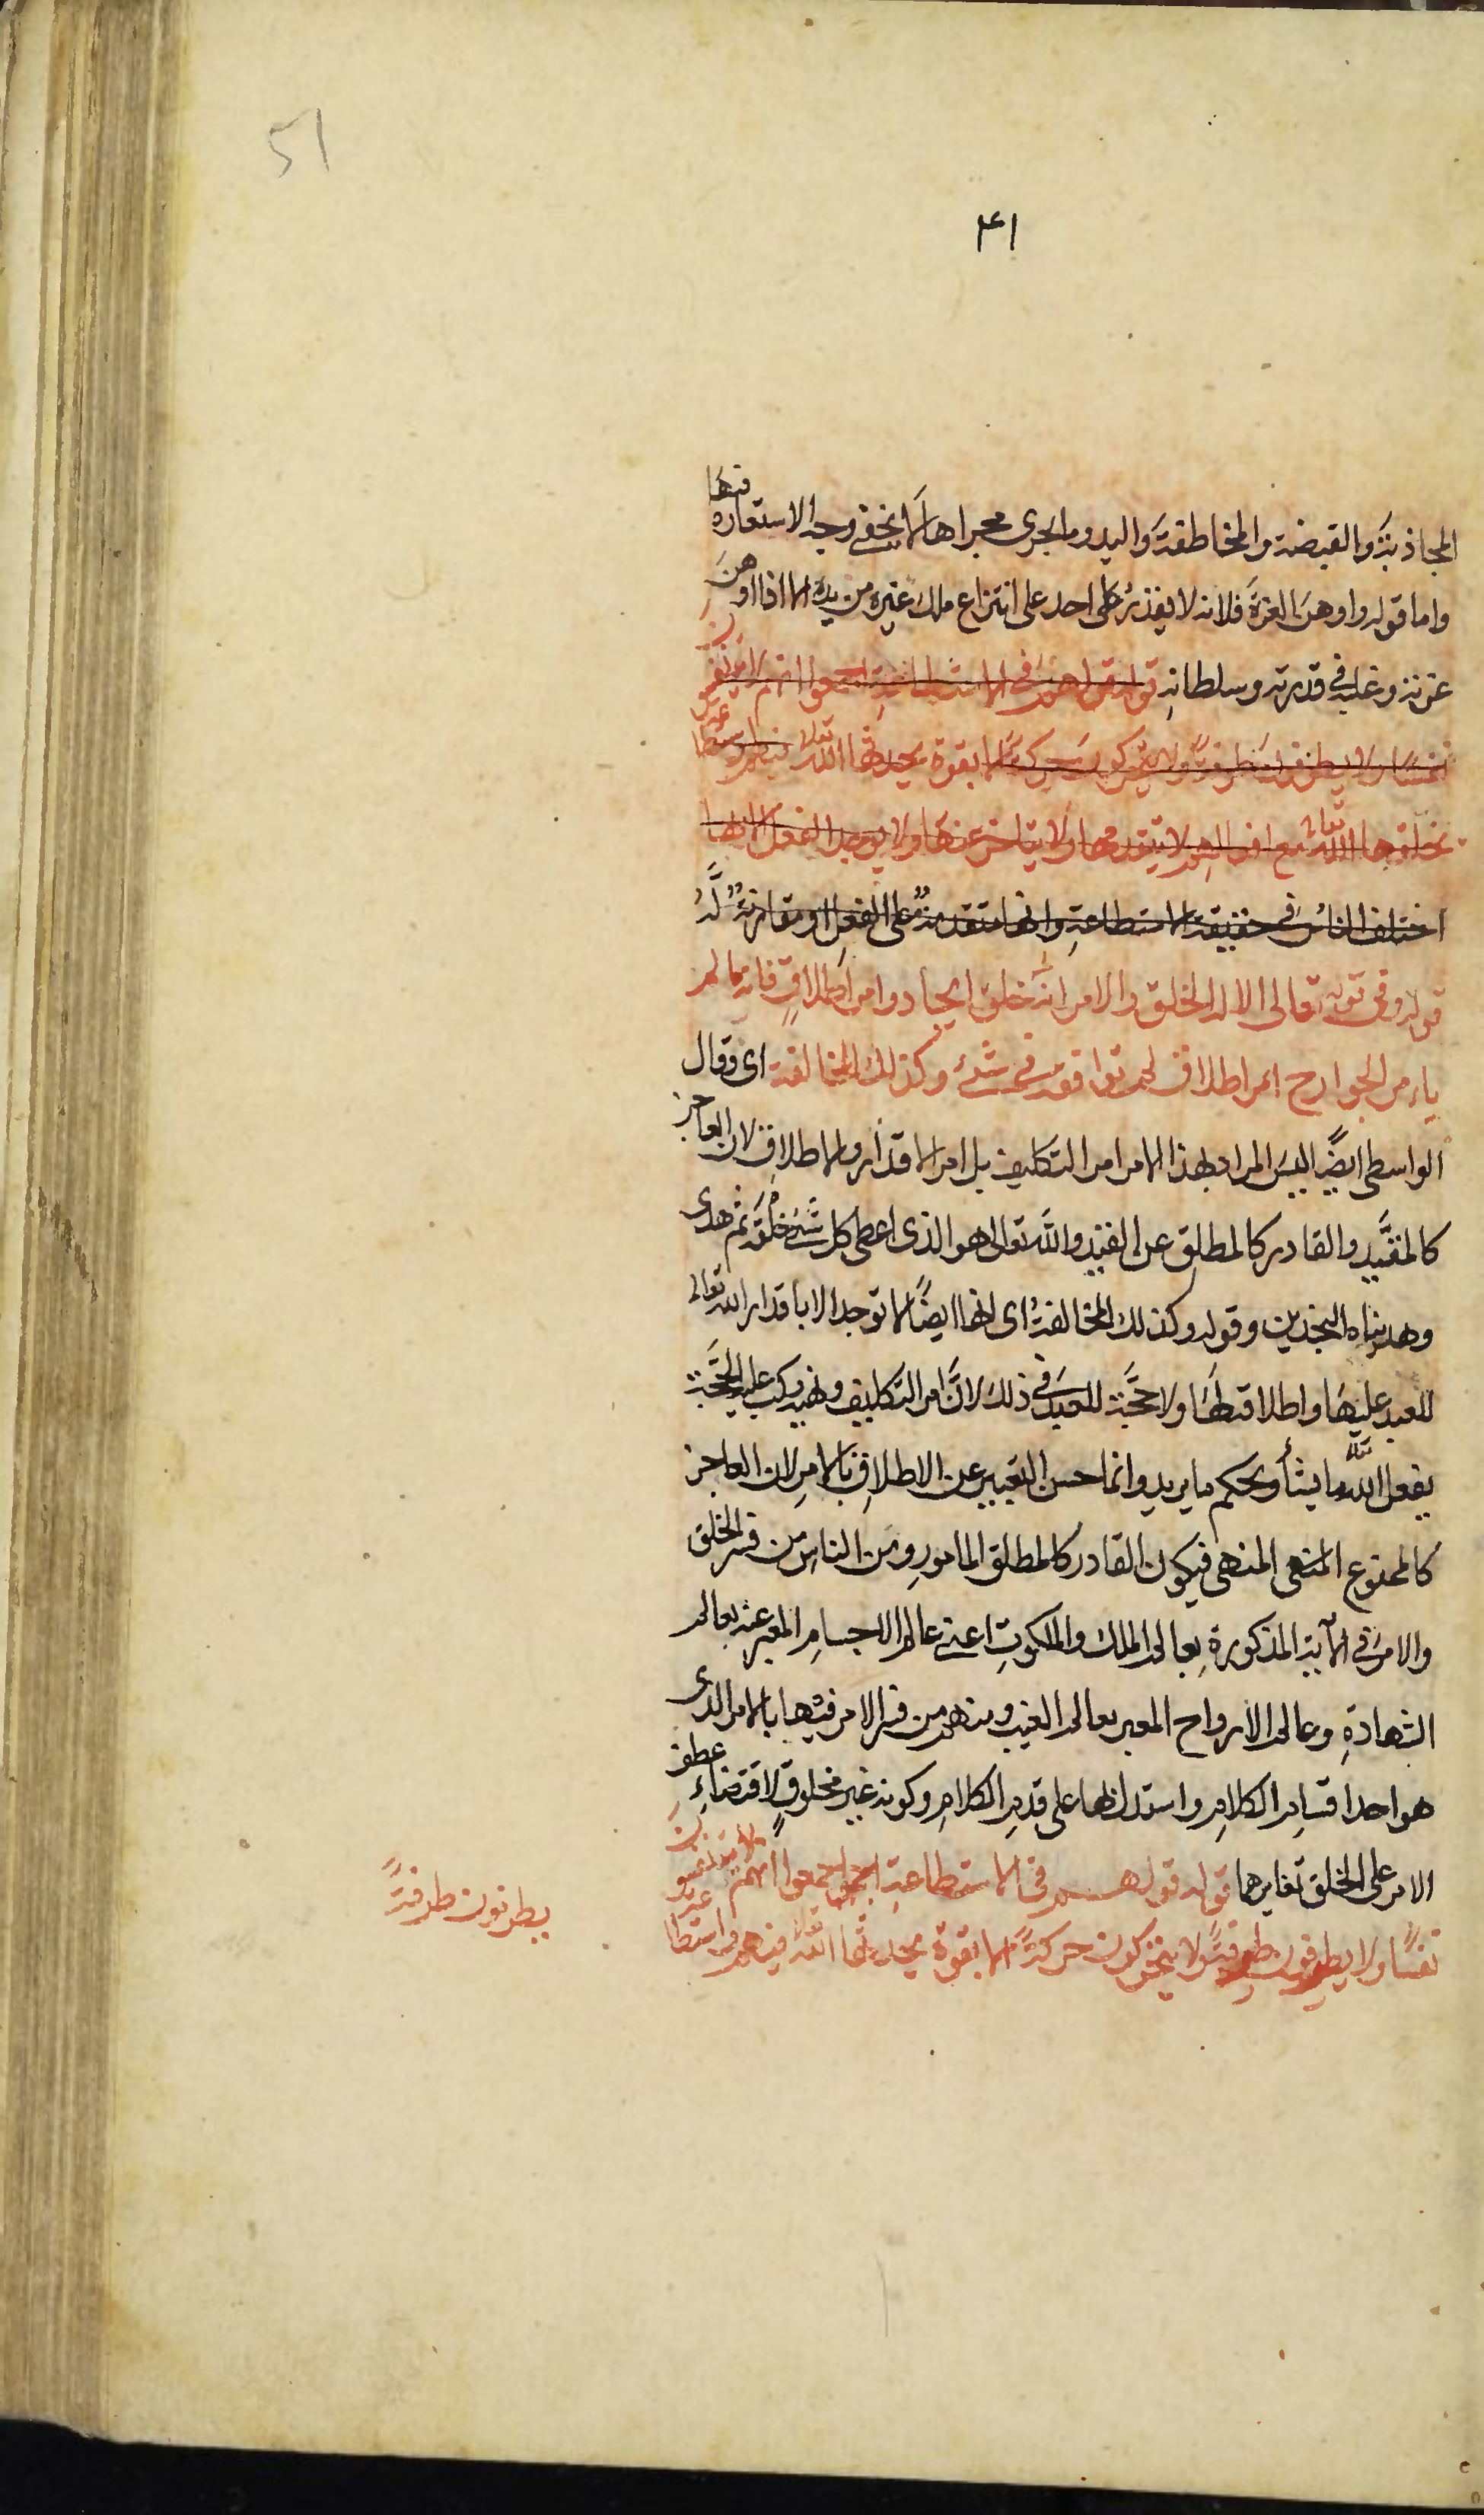 51
۴۱
المجاذبة والقبضة والمخاطفة واليد وما يجرى مجراها لا يخفى وجه الاستعاره فيها
واما قوله واوهن العزة فلانه لا يقدر على احد على انتزاع ملك غيره من يده الا اذا اوهن
عزته وغلبه فى قدرته وسلطانه قوله قولهم فى الاستطاعة اجمعوا انهم لا يتنفسون
نفسًا ولا يطرفون طرفةً ولا يتحركون حركةً الا بقوة يحدثها الله تعالى فيهم واستطا
يخلقها الله تعالى مع افعالهم لا يتقدمها ولا يتاخر عنها ولا يوجد الفعل الا بها
اختلف الناس فى حقيقة الاستطاعة وانها متقدمة على الفعل او مقارنة له
قوله وفى قوله تعالى الا له الخلق والامر انه خلق ايجاد وامر اطلاق فانه ما لم
يامر الجوارح امر اطلاق لم توافقه فى شئ وكذلك المخالفة اى وقال
الواسطى ايضًا ليس المراد بهذا الامر امر التكليف بل امر الاقدار والاطلاق لان العاجز
كالمقيد والقادر كالمطلق عن القيد والله تعالى هو الذى اعطى كل شئ خلقه ثم هدى
وهديناه النجدين وقوله وكذلك المخالفة اى انها ايضًا لا توجد الا باقدار الله تعالى
للعبد عليها واطلاقه لها ولا حجة للعبد فى ذلك لان امر التكليف ونهيه ركب عليه الحجة
يفعل الله تعالى ما يشأ ويحكم ما يريد وانما حسن التعبير عن الاطلاق بالامر لان العاجز
كالممنوع المنهى فيكون القادر كالمطلق المامور ومن الناس من فسر الخلق
والامر فى الآية المذكورة بعالم الملك والملكوت اعنى عالم الاجسام المعبر عنه بعالم
الشهادة وعالم الارواح المعبر بعالم الغيب ومنهم من فسر الامر فيها بالامر الذى
هو احد اقسام الكلام واستدل بها على قدم الكلام وكونه غير مخلوق لاقتضاء عطف
الامر على الخلق تغايرهما قوله قولهم فى الاستطاعة اجمعوا انهم لا يتنفسون
نفسًا ولا يطرفون طرفةً ولا يتحركون حركةً الا بقوة يحدثها الله تعالى فيهم واستطا
يطرفون طرفةً